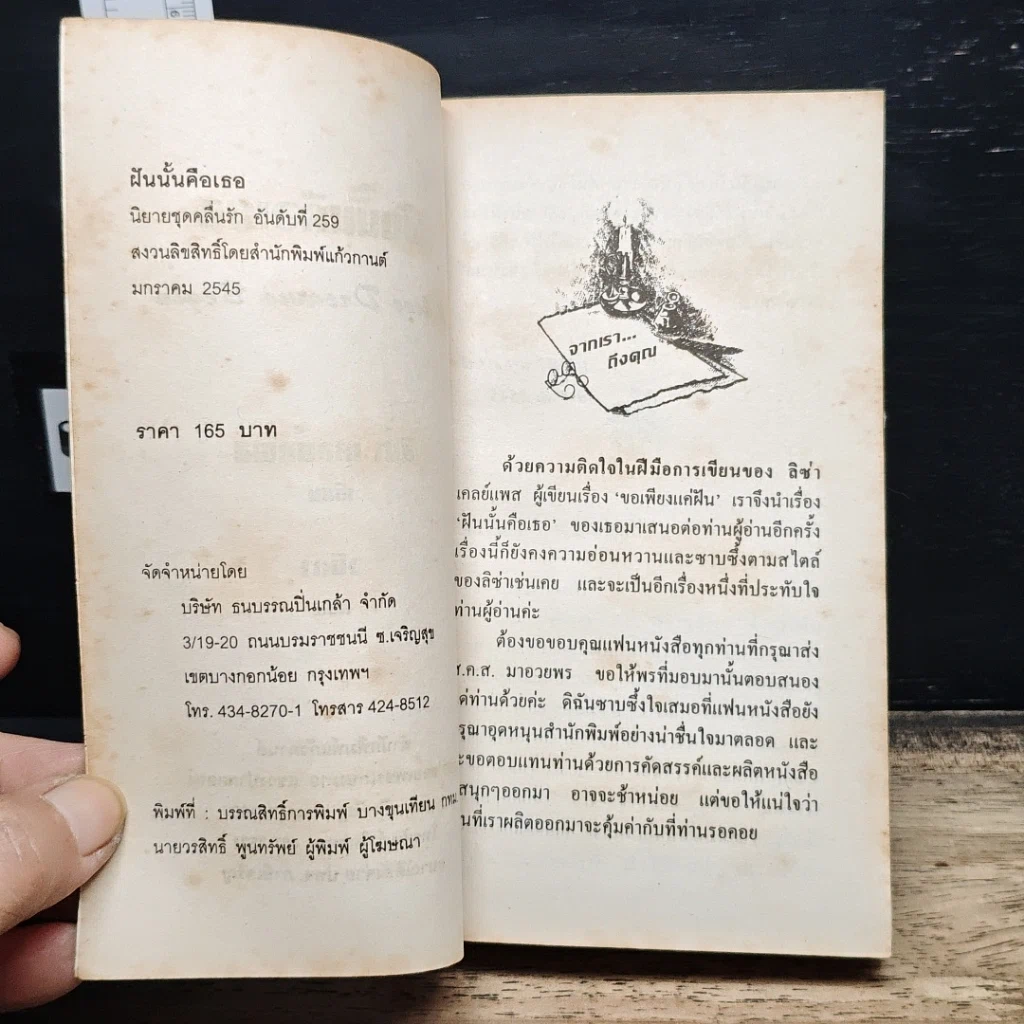 ฝันนั้นคือเธอ
นิยายชุดคลื่นรัก อันดับที่ 259
สงวนลิขสิทธิ์โดยสำนักพิมพ์แก้วกานต์
มกราคม 2545
ราคา 165 บาท
จัดจำหน่ายโดย
บริษัท ธนบรรณปิ่นเกล้า จำกัด
3/19-20 ถนนบรมราชชนนี ซ.เจริญสุข
เขตบางกอกน้อย กรุงเทพฯ
โทร. 434-8270-1 โทรสาร 424-8512
พิมพ์ที่ : บรรณสิทธิ์การพิมพ์ บางขุนเทียน กทม
นายวรสิทธิ์ พูนทรัพย์ ผู้พิมพ์ ผู้โฆษณา
จากเรา...
ถึงคุณ
ด้วยความติดใจในฝีมือการเขียนของ ลิซ่า
เคลย์แพส ผู้เขียนเรื่อง ‘ขอเพียงแค่ฝัน’ เราจึงนำเรื่อง
‘ฝันนั้นคือเธอ’ ของเธอมาเสนอต่อท่านผู้อ่านอีกครั้ง
เรื่องนี้ก็ยังคงความอ่อนหวานและซาบซึ้งตามสไตล์
ของลิซ่าเช่นเคย และจะเป็นอีกเรื่องหนึ่งที่ประทับใจ
ท่านผู้อ่านค่ะ
ต้องขอขอบคุณแฟนหนังสือทุกท่านที่กรุณาส่ง
ส.ค.ส. มาอวยพร ขอให้พรที่มอบมานั้นตอบสนอง
ท่านด้วยค่ะ ดิฉันซาบซึ้งใจเสมอที่แฟนหนังสือยัง
อุดหนุนสำนักพิมพ์อย่างน่าชื่นใจมาตลอด และ
ขอตอบแทนท่านด้วยการคัดสรรค์และผลิตหนังสือ
สนุกๆออกมา อาจจะช้าหน่อย แต่ขอให้แน่ใจว่า
ที่เราผลิตออกมาจะคุ้มค่ากับที่ท่านรอคอย